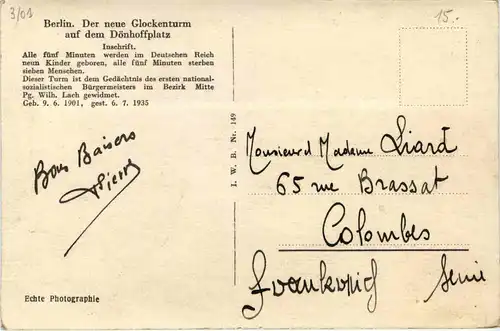 3/01
15.-
Berlin. Der neue Glockenturm
auf dem Dönhoffplatz
Inschrift.
Alle fünf Minuten werden im Deutschen Reich
neun Kinder geboren, alle fünf Minuten sterben
sieben Menschen.
Dieser Turm ist dem Gedächtnis des ersten national-
sozialistischen Bürgermeisters im Bezirk Mitte
Pg. Wilh. Lach gewidmet.
Geb. 9. 6. 1901, gest. 6. 7. 1935
Bons Baisers
Pierre
I. W. B. Nr. 149
Monsieur et Madame Liard
65 rue Brassat
Colombes
Frankreich Seine
Echte Photographie